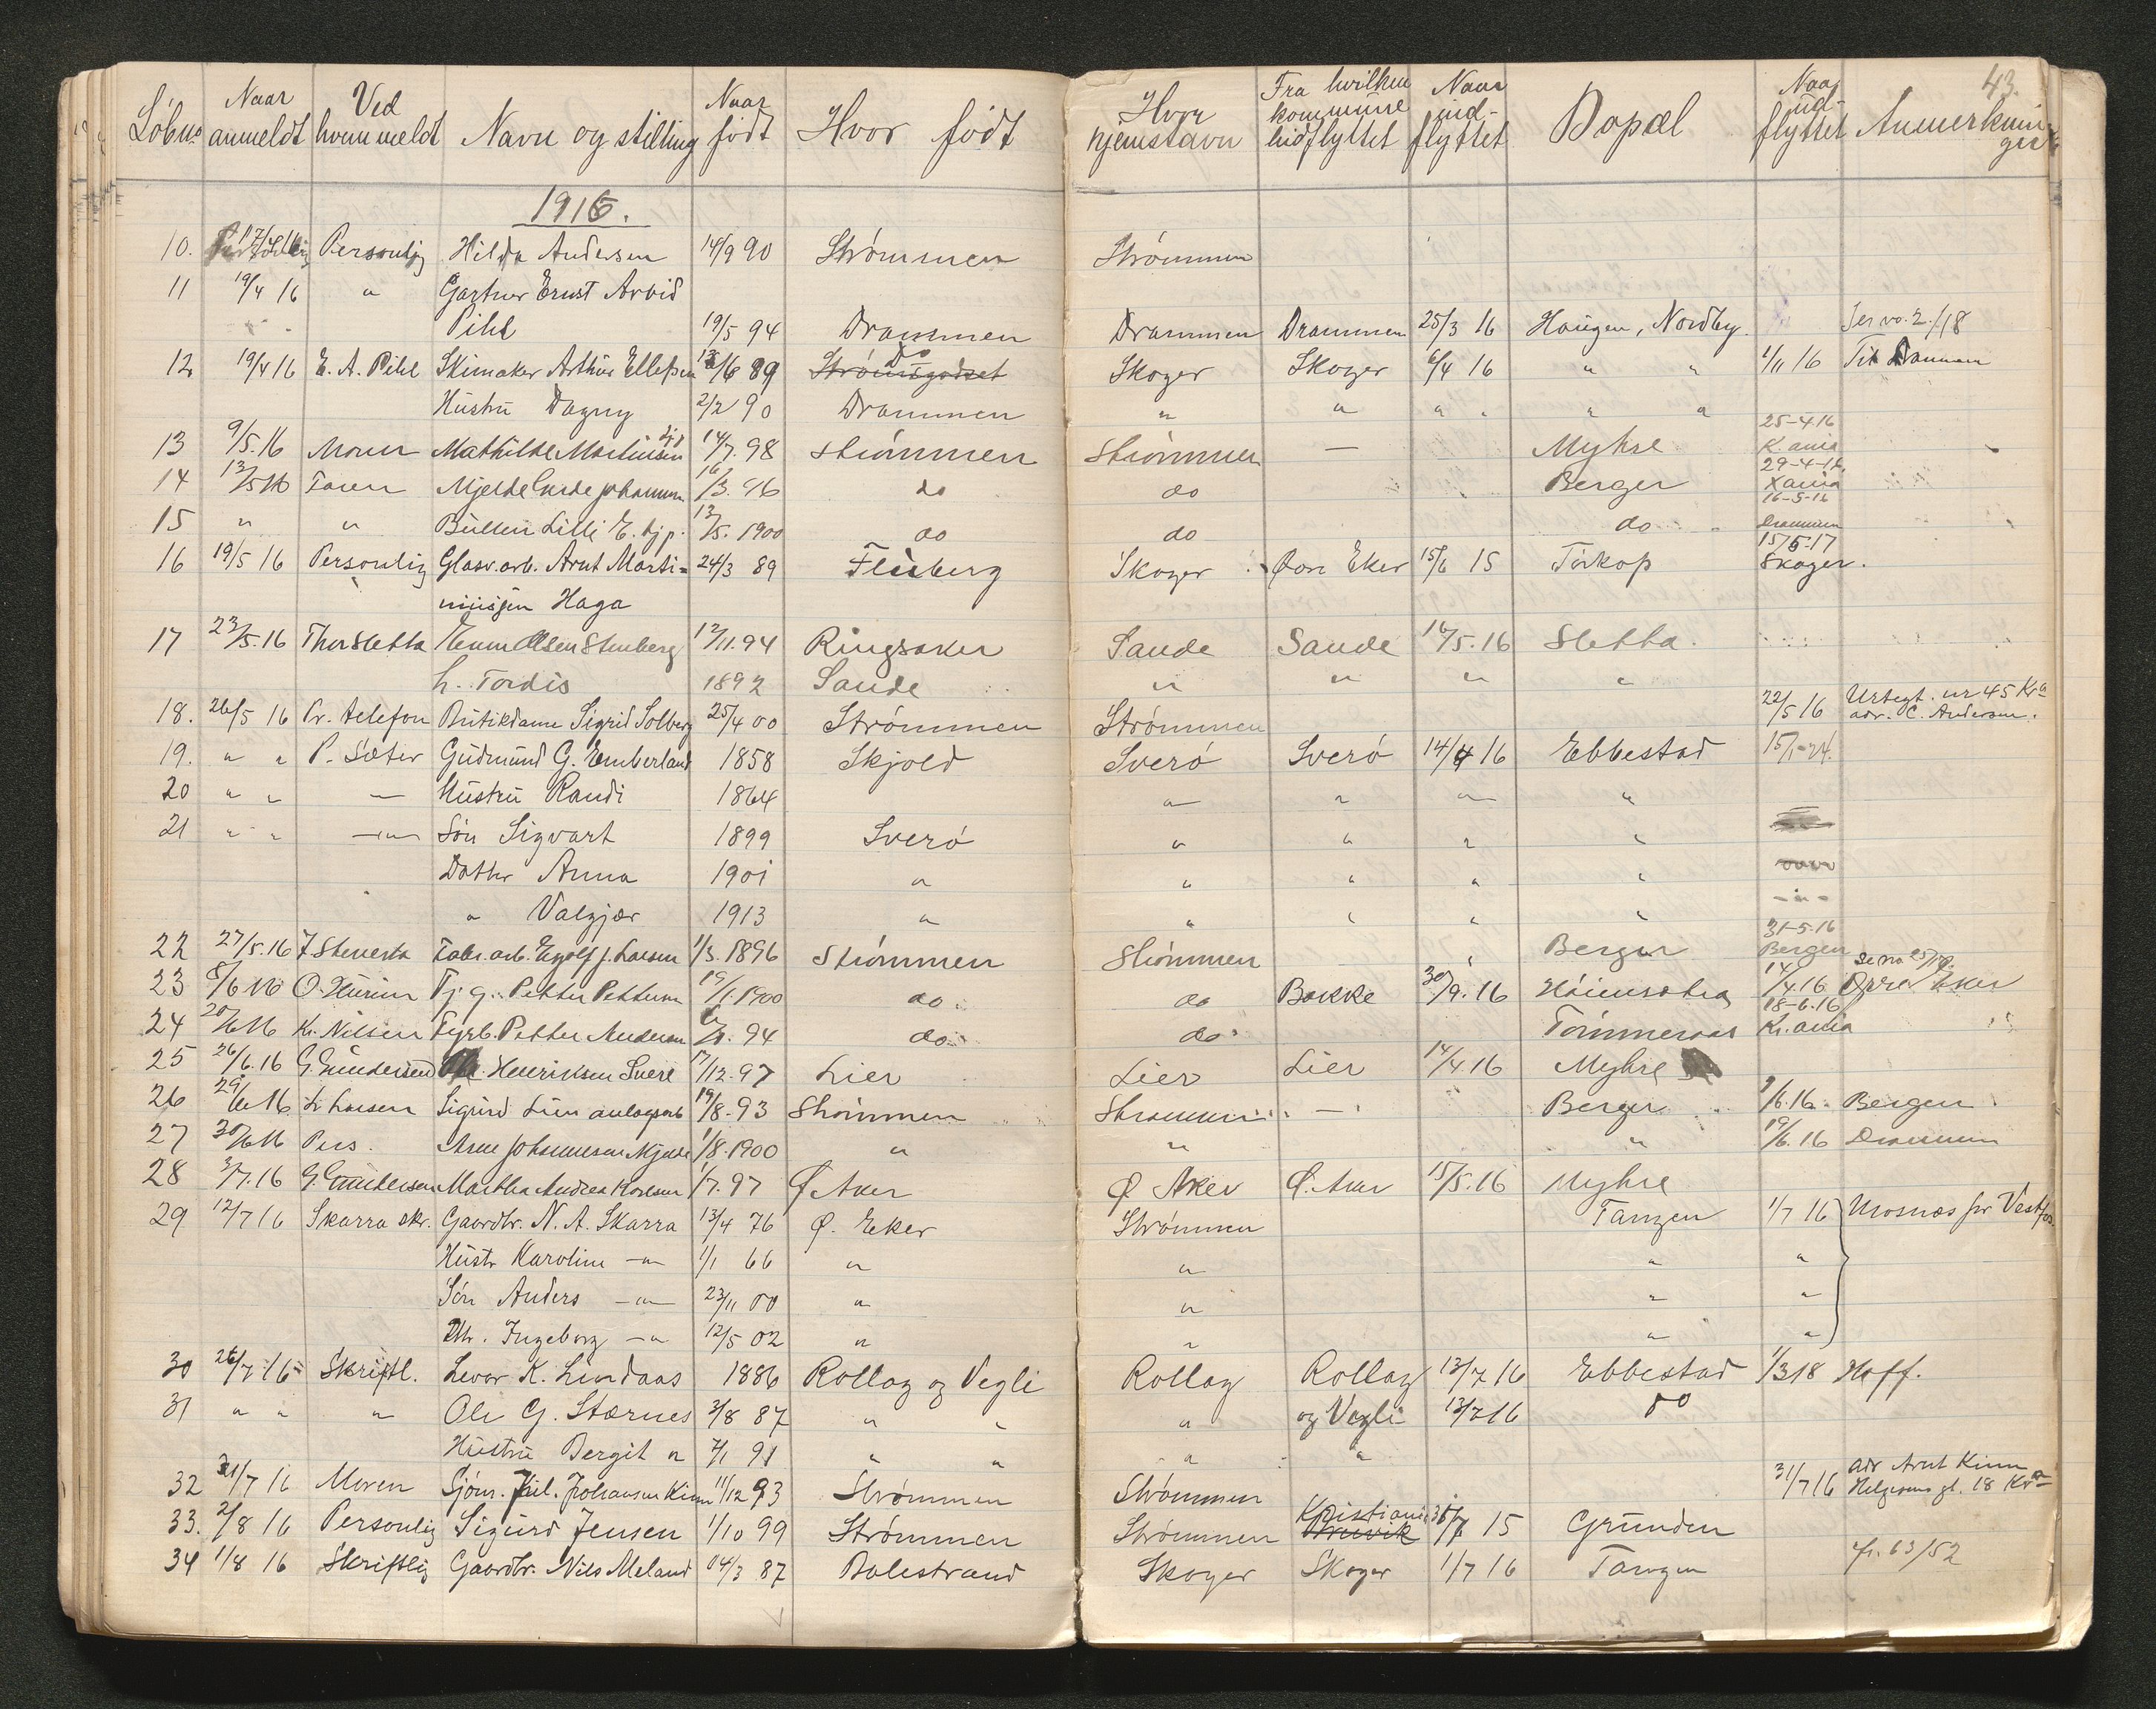 43.
Löbno. Naar anmeldt Ved hvem meldt Navn og stilling Naar født Hvor født Hvor hjemstavn Fra hvilken kommune indflyttet Naar indflyttet Bopæl Naar udflyttet Anmerkninger
1916.
10. 17/4 16 Personlig Hilda Andersen 14/9 90 Strømmen Strømmen
11 19/4 16 " Gartner Ernst Arvid
Pihl 19/5 94 Drammen Drammen Drammen 25/3 16 Haugen, Nordby. Se no. 2./18
12. 19/4 16 E. A. Pihl Skimaker Arthur Ellefsen 13/6 89 Strømsgodset Do Skoger Skoger 6/4 16 " " 1/11 16 Til Drammen
Hustru Dagny 2/2 90 Drammen " " " " " "
13 9/5. 16 Moren Mathilde Martinsen 14/7. 98 Strømmen Strømmen — Myhre 25-4 16 K.ania
14 13/5 16 Faren Mjelde Gerda Johannes. 16/3. 96 do do Berger 29-4-16 Kania
15 " " Bullen Lilli E. tjp. 13/5. 1900 do do do 16-5-16 Drammen
16 19/5 16 Personlig Glasv.arb. Arnt Marti= 24/3 89 Flesberg Skoger Øvre Eker 15/6 15 Tørkop 15/5-17 Skoger.
niusen Haga
17 23/5. 16 Thor Sletta Even Olsen Stenberg 12/11. 94 Ringsaker Sande Sande 16/5. 16 Sletta.
h. Tordis 1892 Sande " " " "
18. 26/5 16 Pr. telefon Butikdame Sigrid Solberg 25/4 00 Strømmen Strømmen 22/5 16 Urtegt. nr 45 Kr.a adr. C. Andersen.
19. " " P. Sæter Gudmund G. Emberland 1858 Skjold Sverø Sverø 14/4 16 Ebbestad 15/1-24.
20 " " — Hustru Randi 1864 " " " "
21 " " —"— Søn Sigvart 1899 Sverø " " " "
Datter Anna 1901 " " " " "
" Valgjer 1913 " " " " " -"-
22 27/5. 16 J. Stenersta Fabr. arb. Engolf J. Larsen 1/3. 1896 Strømmen Strømmen Berger 31-5-16 Bergen
23 5/6 16 O. Hurum Tj. g. Petter Pettersen 19/1. 1900 do do Bakke 30/9. 16 Høiensætra 14/4. 16 Øvre Eker se no 25/19.
24 20/6 16 Kr. Nilsen Fyrb. Petter Andersen 94 do do Tømmeraas 18-6. 16 Kr.ania
25 26/6. 16 G. Gundersen Henriksen Sverre 17/12. 97 Lier Lier Lier 14/4 16 Myhre
26 29/6 16 L. Larsen Sigurd Lien anlagsarb 19/8. 93 Strømmen Strømmen — Berger 9/6. 16. Bergen
27 30/6 16 Pers. Arne Johannesen Mjelde 1/8. 1900 " " " 19/6. 16 Drammen
28 3/7. 16 G. Gundersen Martha Andrea Karlsen 1/7. 97 Ø. Aker Ø. Aker Ø. Aker 15/5. 16 Myhre
29 12/7 16 Skarra skr. Gaardbr. N. A. Skarra 13/4 76 Ø. Eker Strømmen Tangen 1/7 16 Mosnæs pr Vestfos.
Hustr. Karoline —"— 1/1 66 " " " "
Søn Anders —"— 23/11 00 " " " "
Dtr. Ingeborg —"— 12/5 02 " " " "
30 26/7 16 Skriftl. Levor K. Lindaas 1886 Rollag og Vegli Rollag Rollag 13/7 16 Ebbestad 1/3 18 Hoff.
31 " " " Ole G. Stærnes 3/8 87 " " " og Vegli 13/7 16 do
Hustru Bergit " 7/1 91 " " " "
32 31/7 16 Moren Sjøm. Jul. Johansen Kinn 11/12 93 Strømmen Strømmen 31/7 16 adr Arnt Kinn Helgesens gt. 18 Kr.a
33. 2/8 16 Personlig Sigurd Jensen 1/10 99 Strømmen Strømmen Kristiania 31/7 15 Grunden
34 1/8 16 Skriftlig Gaardbr. Nils Meland 04/3 87 Balestrand Skoger Skoger 1/7 16 Tangen fr. 63/52